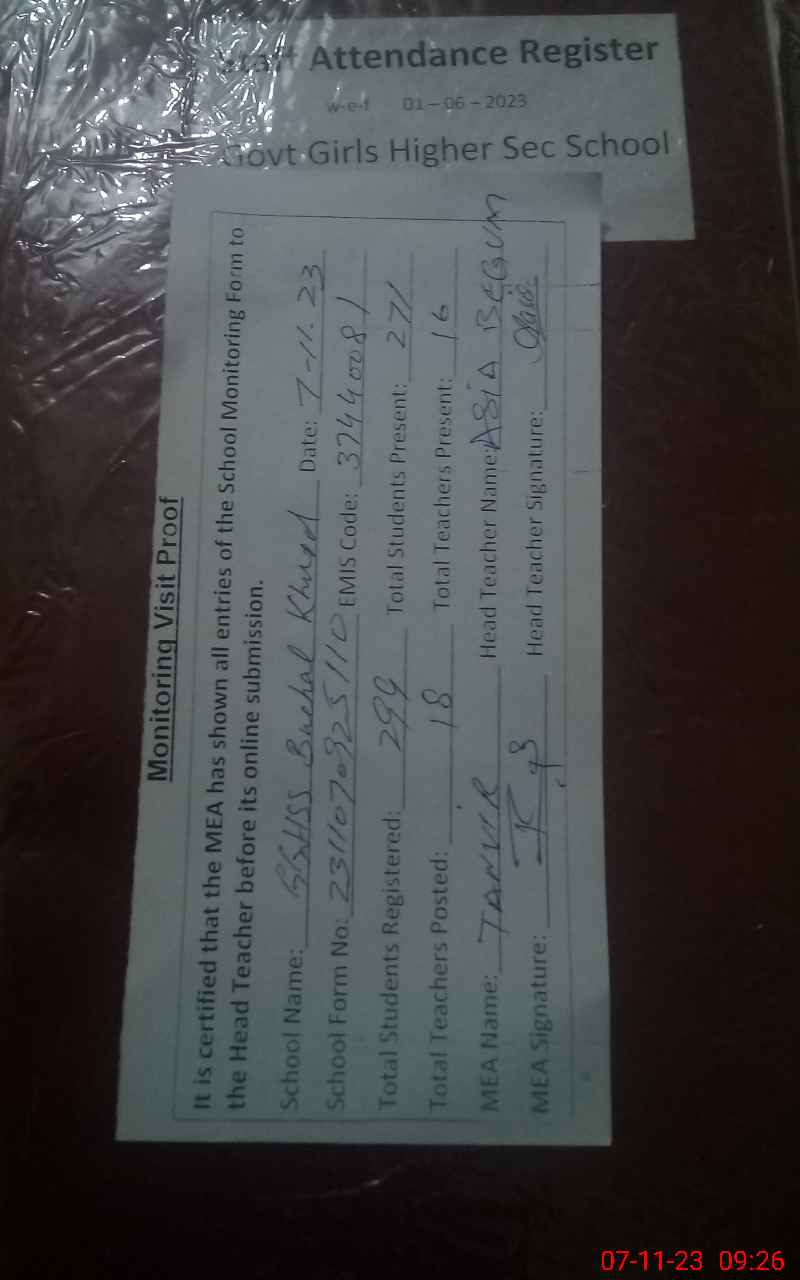 Staff Attendance Register
w-e-f 01-06-2023
Govt Girls Higher Sec School
Monitoring Visit Proof
It is certified that the MEA has shown all entries of the School Monitoring Form to
the Head Teacher before its online submission.
School Name: GGHSS Buchal Khurd Date: 7-11.23
School Form No: 2311070925110 EMIS Code: 37440081
Total Students Registered: 299 Total Students Present: 271
Total Teachers Posted: 18 Total Teachers Present: 16
MEA Name: TANVIR Head Teacher Name: ASIA BEGUM
MEA Signature: Head Teacher Signature:
07-11-23 09:26